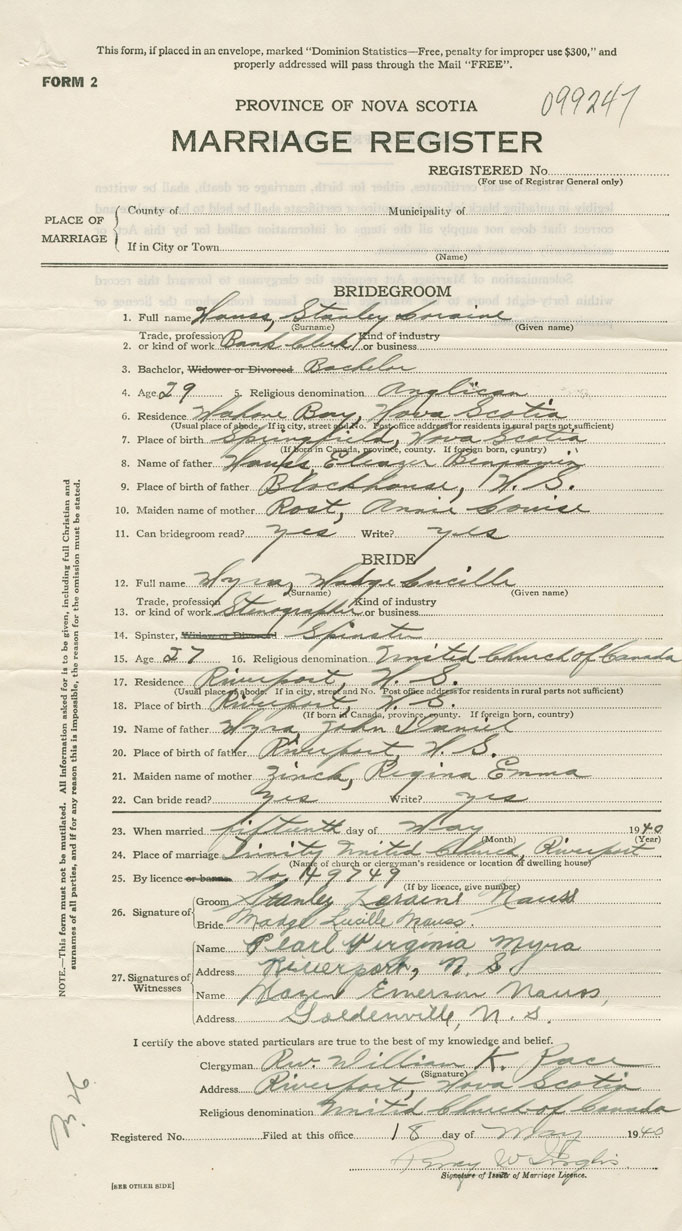 This form, if placed in an envelope, marked "Dominion Statistics—Free, penalty for improper use $300," and
properly addressed will pass through the Mail "FREE".
FORM 2
099247
PROVINCE OF NOVA SCOTIA
MARRIAGE REGISTER
REGISTERED No.
(For use of Registrar General only)
PLACE OF MARRIAGE
County of Municipality of
If in City or Town
(Name)
BRIDEGROOM
1. Full name Nauss, Stanley Loraine
(Surname) (Given name)
Trade, profession Kind of industry
2. or kind of work Bank Clerk or business
3. Bachelor, Widower or Divorced Bachelor
4. Age 29 5. Religious denomination Anglican
6. Residence Mahone Bay, Nova Scotia
(Usual place of abode. If in city, street and No. Post office address for residents in rural parts not sufficient)
7. Place of birth Springfield, Nova Scotia
(If born in Canada, province, county. If foreign born, country)
8. Name of father Nauss Eleazer Benjamin
9. Place of birth of father Blockhouse, N.S.
10. Maiden name of mother Rost, Annie Louise
11. Can bridegroom read? yes Write? yes
BRIDE
12. Full name Myra, Madge Lucille
(Surname) (Given name)
Trade, profession Kind of industry
13. or kind of work Stenographer or business
14. Spinster, Widow or Divorced Spinster
15. Age 27 16. Religious denomination United Church of Canada
17. Residence Riverport, N.S.
(Usual place of abode. If in city, street and No. Post office address for residents in rural parts not sufficient)
18. Place of birth Riverport, N.S.
(If born in Canada, province, county. If foreign born, country)
19. Name of father Myra, John Daniel
20. Place of birth of father Riverport, N.S.
21. Maiden name of mother Zinck, Regina Emma
22. Can bride read? yes Write? yes
23. When married fifteenth day of May 1940
(Month) (Year)
24. Place of marriage Trinity United Church, Riverport
(Name of church or clergyman's residence or location of dwelling house)
25. By licence or banns No. 149749
(If by licence, give number)
26. Signature of
Groom Stanley Loraine Nauss
Bride Madge Lucille Nauss.
27. Signatures of Witnesses
Name Pearl Virginia Myra
Address Riverport, N.S.
Name Emerson Nauss,
Address Goldenville, N.S.
I certify the above stated particulars are true to the best of my knowledge and belief.
Clergyman Rev. William K. Race
(Signature)
Address Riverport, Nova Scotia
Religious denomination United Church of Canada
Registered No. Filed at this office 18 day of May 1940
Signature of Issuer of Marriage Licence.
[SEE OTHER SIDE]
NOTE.—This form must not be mutilated. All information asked for is to be given, including full Christian and
surnames of all parties, and if for any reason this is impossible, the reason for the omission must be stated.